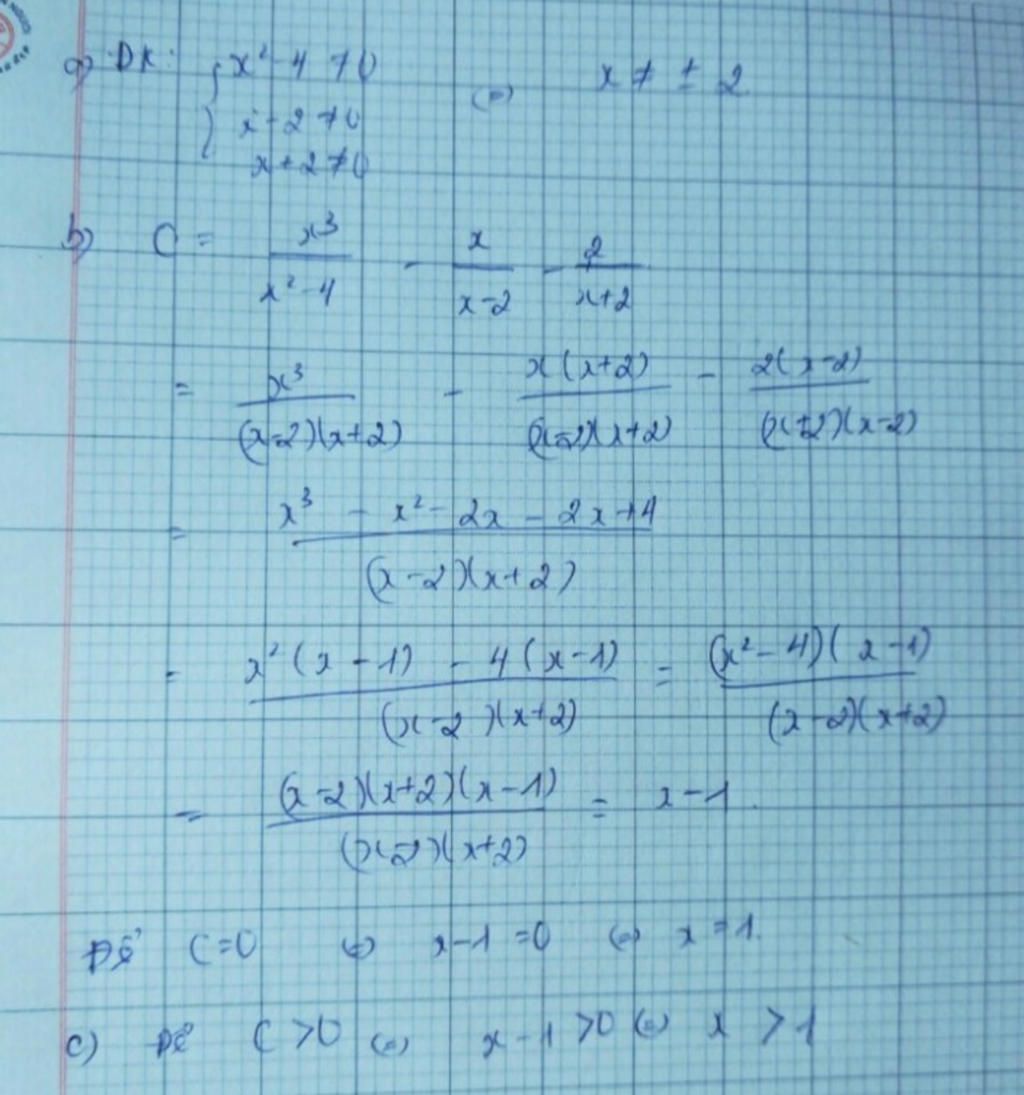 a) ĐK: { x² - 4 ≠ 0
x - 2 ≠ 0
x + 2 ≠ 0
(=) x ≠ ± 2
b) C = x³/(x² - 4) - x/(x - 2) - 2/(x + 2)
= x³/((x - 2)(x + 2)) - x(x + 2)/((x - 2)(x + 2)) - 2(x - 2)/((x + 2)(x - 2))
= (x³ - x² - 2x - 2x + 4)/((x - 2)(x + 2))
= (x²(x - 1) - 4(x - 1))/((x - 2)(x + 2)) = (x² - 4)(x - 1)/((x - 2)(x + 2))
= (x - 2)(x + 2)(x - 1)/((x - 2)(x + 2)) = x - 1.
Để C = 0 (=) x - 1 = 0 (=) x = 1.
c) Để C > 0 (=) x - 1 > 0 (=) x > 1